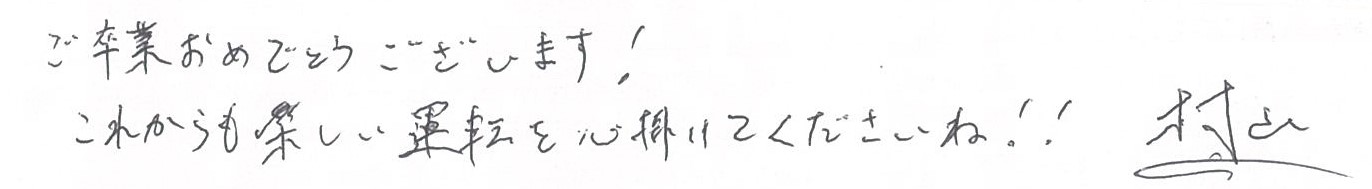 ご卒業おめでとうございます!
これからも楽しい運転を心掛けてくださいね!! 村山